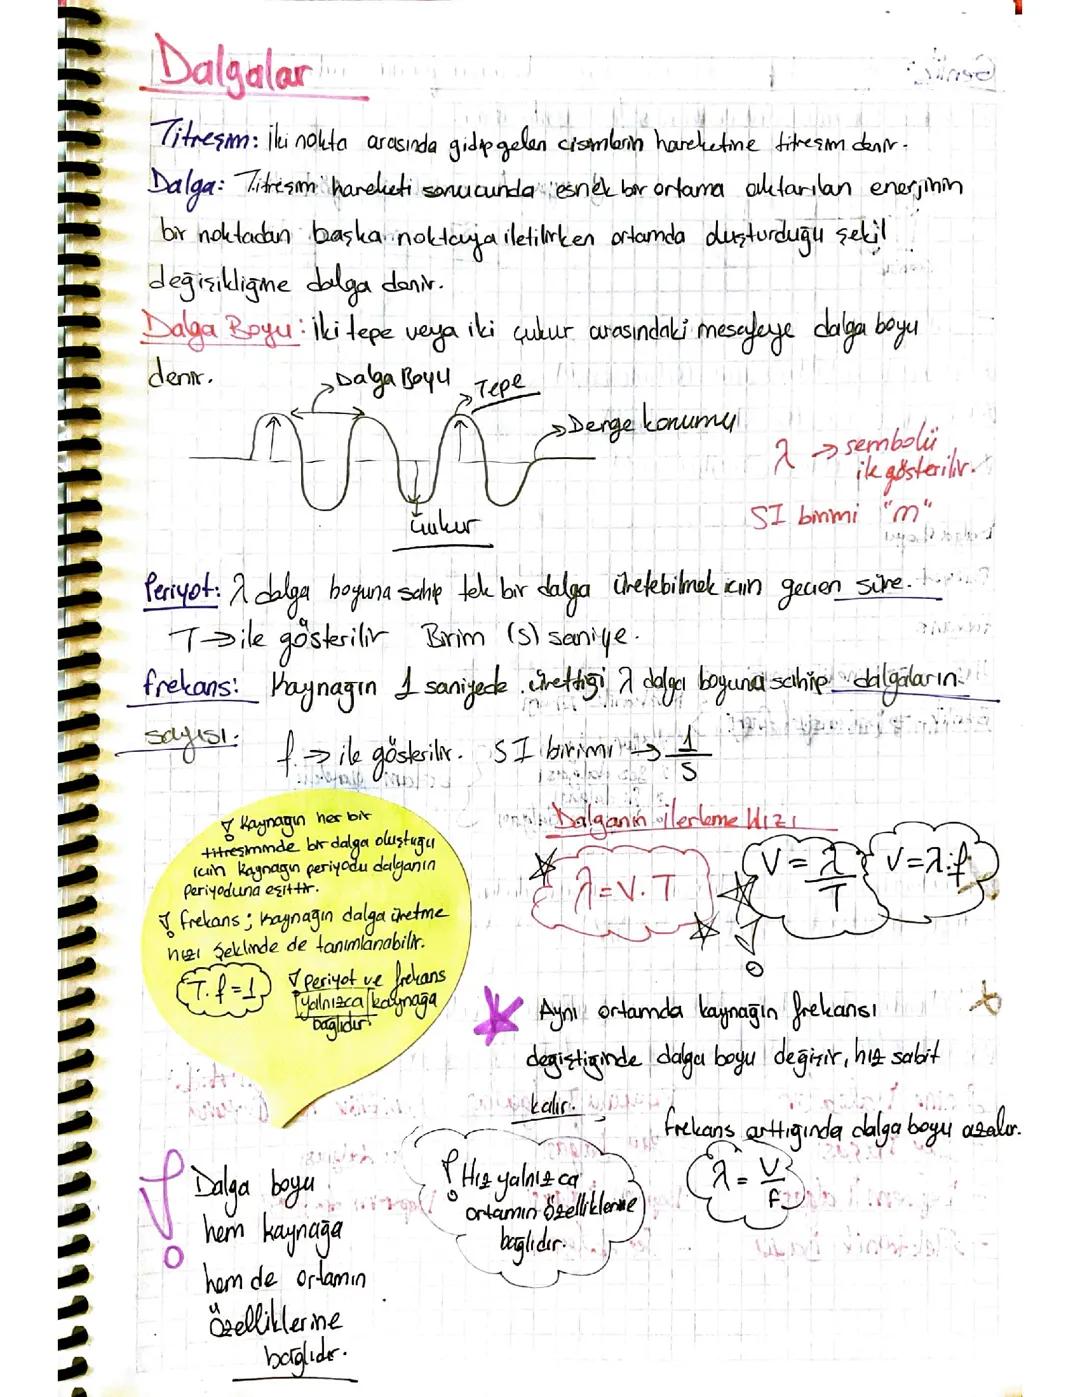 Dalgalar
Titreşim: İki nokta arasında gidip gelen cisimlerin hareketine titreşim denir.
Dalga: Titreşim hareketi sonucunda esnek bir ortama aktarılan enerjinin
bir noktadan başka noktaya iletilirken ortamda oluşturduğu şekil
değişikliğine dalga denir.
Dalga Boyu: iki tepe veya iki çukur arasındaki mesafeye dalga boyu
denir.
Dalga Boyu
Tepe
Denge konumu
Çukur
λ → sembolü
ile gösterilir.
SI birimi "m"
Periyot: λ dalga boyuna sahip tek bir dalga üretebilmek için geçen süre.
T → ile gösterilir Birim (s) saniye.
frekans: Kaynağın 1 saniyede ürettiği λ dalga boyuna sahip dalgaların
sayısı.
f → ile gösterilir. SI birimi → 1/s
Kaynağın her bir
titreşiminde bir dalga oluştuğu
için kaynağın periyodu dalganın
periyoduna eşittir.
frekans; kaynağın dalga üretme
hızı şeklinde de tanımlanabilir.
T.f=1
Periyot ve frekans
yalnızca kaynağa
bağlıdır.
Dalganın ilerleme Hızı
λ=V.T
V=λ/T
V=λ.f
Aynı ortamda kaynağın frekansı
değiştiğinde dalga boyu değişir, hız sabit
kalır.
frekans arttığında dalga boyu azalır.
λ=V/f
! Hız yalnızca
ortamın özelliklerine
bağlıdır.
! Dalga boyu
hem kaynağa
hem de ortamın
özelliklerine
bağlıdır.